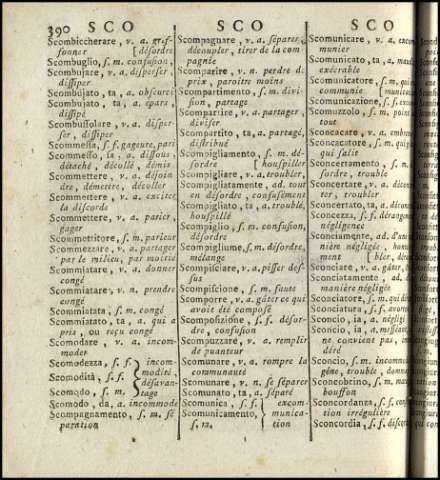 390 SCO SCO SCO
Scombiccherare, v. a. grif-
fonner [ désordre
Scombuglio, s. m. confusion,
Scombujare, v. a. disperser,
dissiper
Scombujato, ta, a. obscurci
Scombujato, ta, a. épars,
dissipé
Scombussolare, v. a. disper-
ser, dissiper
Scommessa, s. f. gageure, pari
Scommesso, sa, a. dissous,
détaché, décollé, démis
Scommettere, v. a. déjoin
dre, démettre, décoller
Scommettere, v. a. exciter
la discorde
Scommettere, v. a. parier,
gager
Scommettitore, s. m. parieur
Scommezzare, v. a. partager
par le milieu, par moitié
Scommiatare, v. a. donner
congé
Scommiatare, v. n. prendre
congé
Scommiatata, s. m. congé
Scommiatato, ta, a. qui a
pris, ou reçu congé
Scomodare, v. a. incom-
moder
Scomodezza, s. f. incom-
Scomodità, s. f. modité,
désavan-
Scomodo, s. m. tage
Scomodo, da, a. incommode
Scompagnamento, s. m. sé
paration
Scompagnare, v. a. séparer,
découpler, tirer de la com
pagnie
Scomparire, v. n. perdre de
prix, paroître moins
Scompartimento, s. m. divi
sion, partage
Scompartire, v. a. partager,
diviser
Scompartito, ta, a. partagé,
distribué
Scompigliamento, s. m. dé-
sordre [ houspiller
Scompigliare, v. a. troubler,
Scompigliatamente, ad. tout
en désordre, confusément
Scompigliato, ta, a. troublé,
houspillé
Scompiglio, s. m. confusion,
désordre
Scompigliume, s. m. désordre,
mélange
Scompisciare, v. a. pisser des-
sus
Scompiscione, s. m. faute
Scomporre, v. a. gâter ce qui
avoit été composé
Scomposizione, s. f. désor-
dre, confusion
Scompuzzare, v. a. remplir
de puanteur
Scomunare, v. a. rompre la
communauté
Scomunare, v. n. se séparer
Scomunato, ta, a. séparé
Scomunica, s. f. excom-
Scomunicamento, munica-
s. m. tion
Scomunicare, v. a. excom
munier
Scomunicato, ta, a. maudit
exécrable
Scomunicatore, s. m. qui
communie
Scomunicazione, s. f.
Scomuzzolo, s. m. point
tout
Sconcacare, v. a.
Sconcacatore, s. m. qui
qui salit
Sconcertamento, s. m.
sordre, trouble
Sconcertare, v. a.
ter, troubler
Sconcertato, ta, a.
Sconcezza, s. f.
négligence
Sconciamente, ad.
nière négligée,
ment
Sconciare, v. a. gâter,
Sconciatamente, ad.
manière négligée
Sconciatore, s. m. qui
Sconciatura, s. f.
Sconcio, ia, a.
Sconcio, ia,
ne convient pas,
déré
Sconcio, s. m. incommo
gêne, trouble,
Sconcobrino, s. m.
bouffon
Sconcordanza, s. f.
tion irrégulière
Sconcordia, s. f.